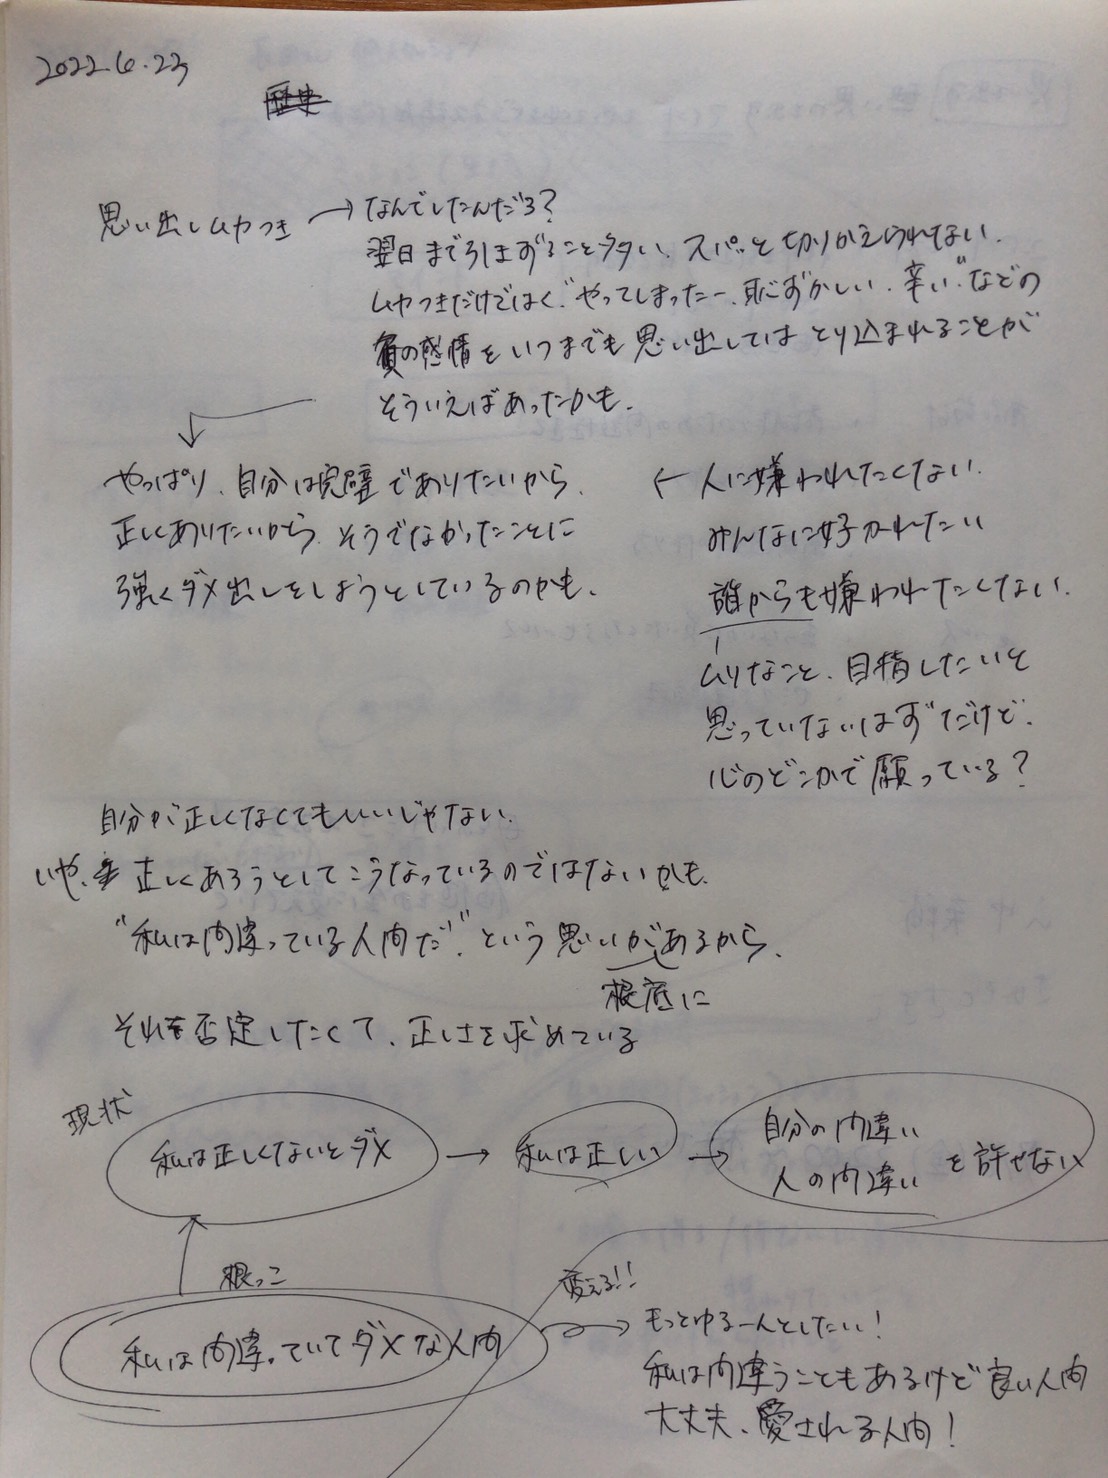 2022.6.23
歴史
思い出しムカつき → なんでしたんだろ?
翌日まで引きずること多い、スパッと切りかえられない。
ムカつきだけではく、"やってしまったー、恥ずかしい、辛い"などの
負の感情をいつまでも思い出してはとり込まれることが
そういえばあったかも。
やっぱり、自分は完璧でありたいから、
正しくありたいから、そうでなかったことに
強くダメ出しをしようとしているのかも、
← 人に嫌われたくない。
みんなに好かれたい
誰からも嫌われたくない。
ムリなこと、目指したいと
思っていないはずだけど、
心のどこかで願っている?
自分が正しくなくてもいいじゃない。
いや、正しくあろうとしてこうなっているのではないかも、
"私は間違っている人間だ"という思いがあるから、
根底に
それを否定したくて、正しさを求めている
現状
私は正しくないとダメ → 私は正しい → 自分の間違い
人の間違い を許せない
根っこ
変える!!
私は間違っていてダメな人間 → もっとゆるーんとしたい!
私は間違うこともあるけど良い人間
大丈夫、愛される人間!